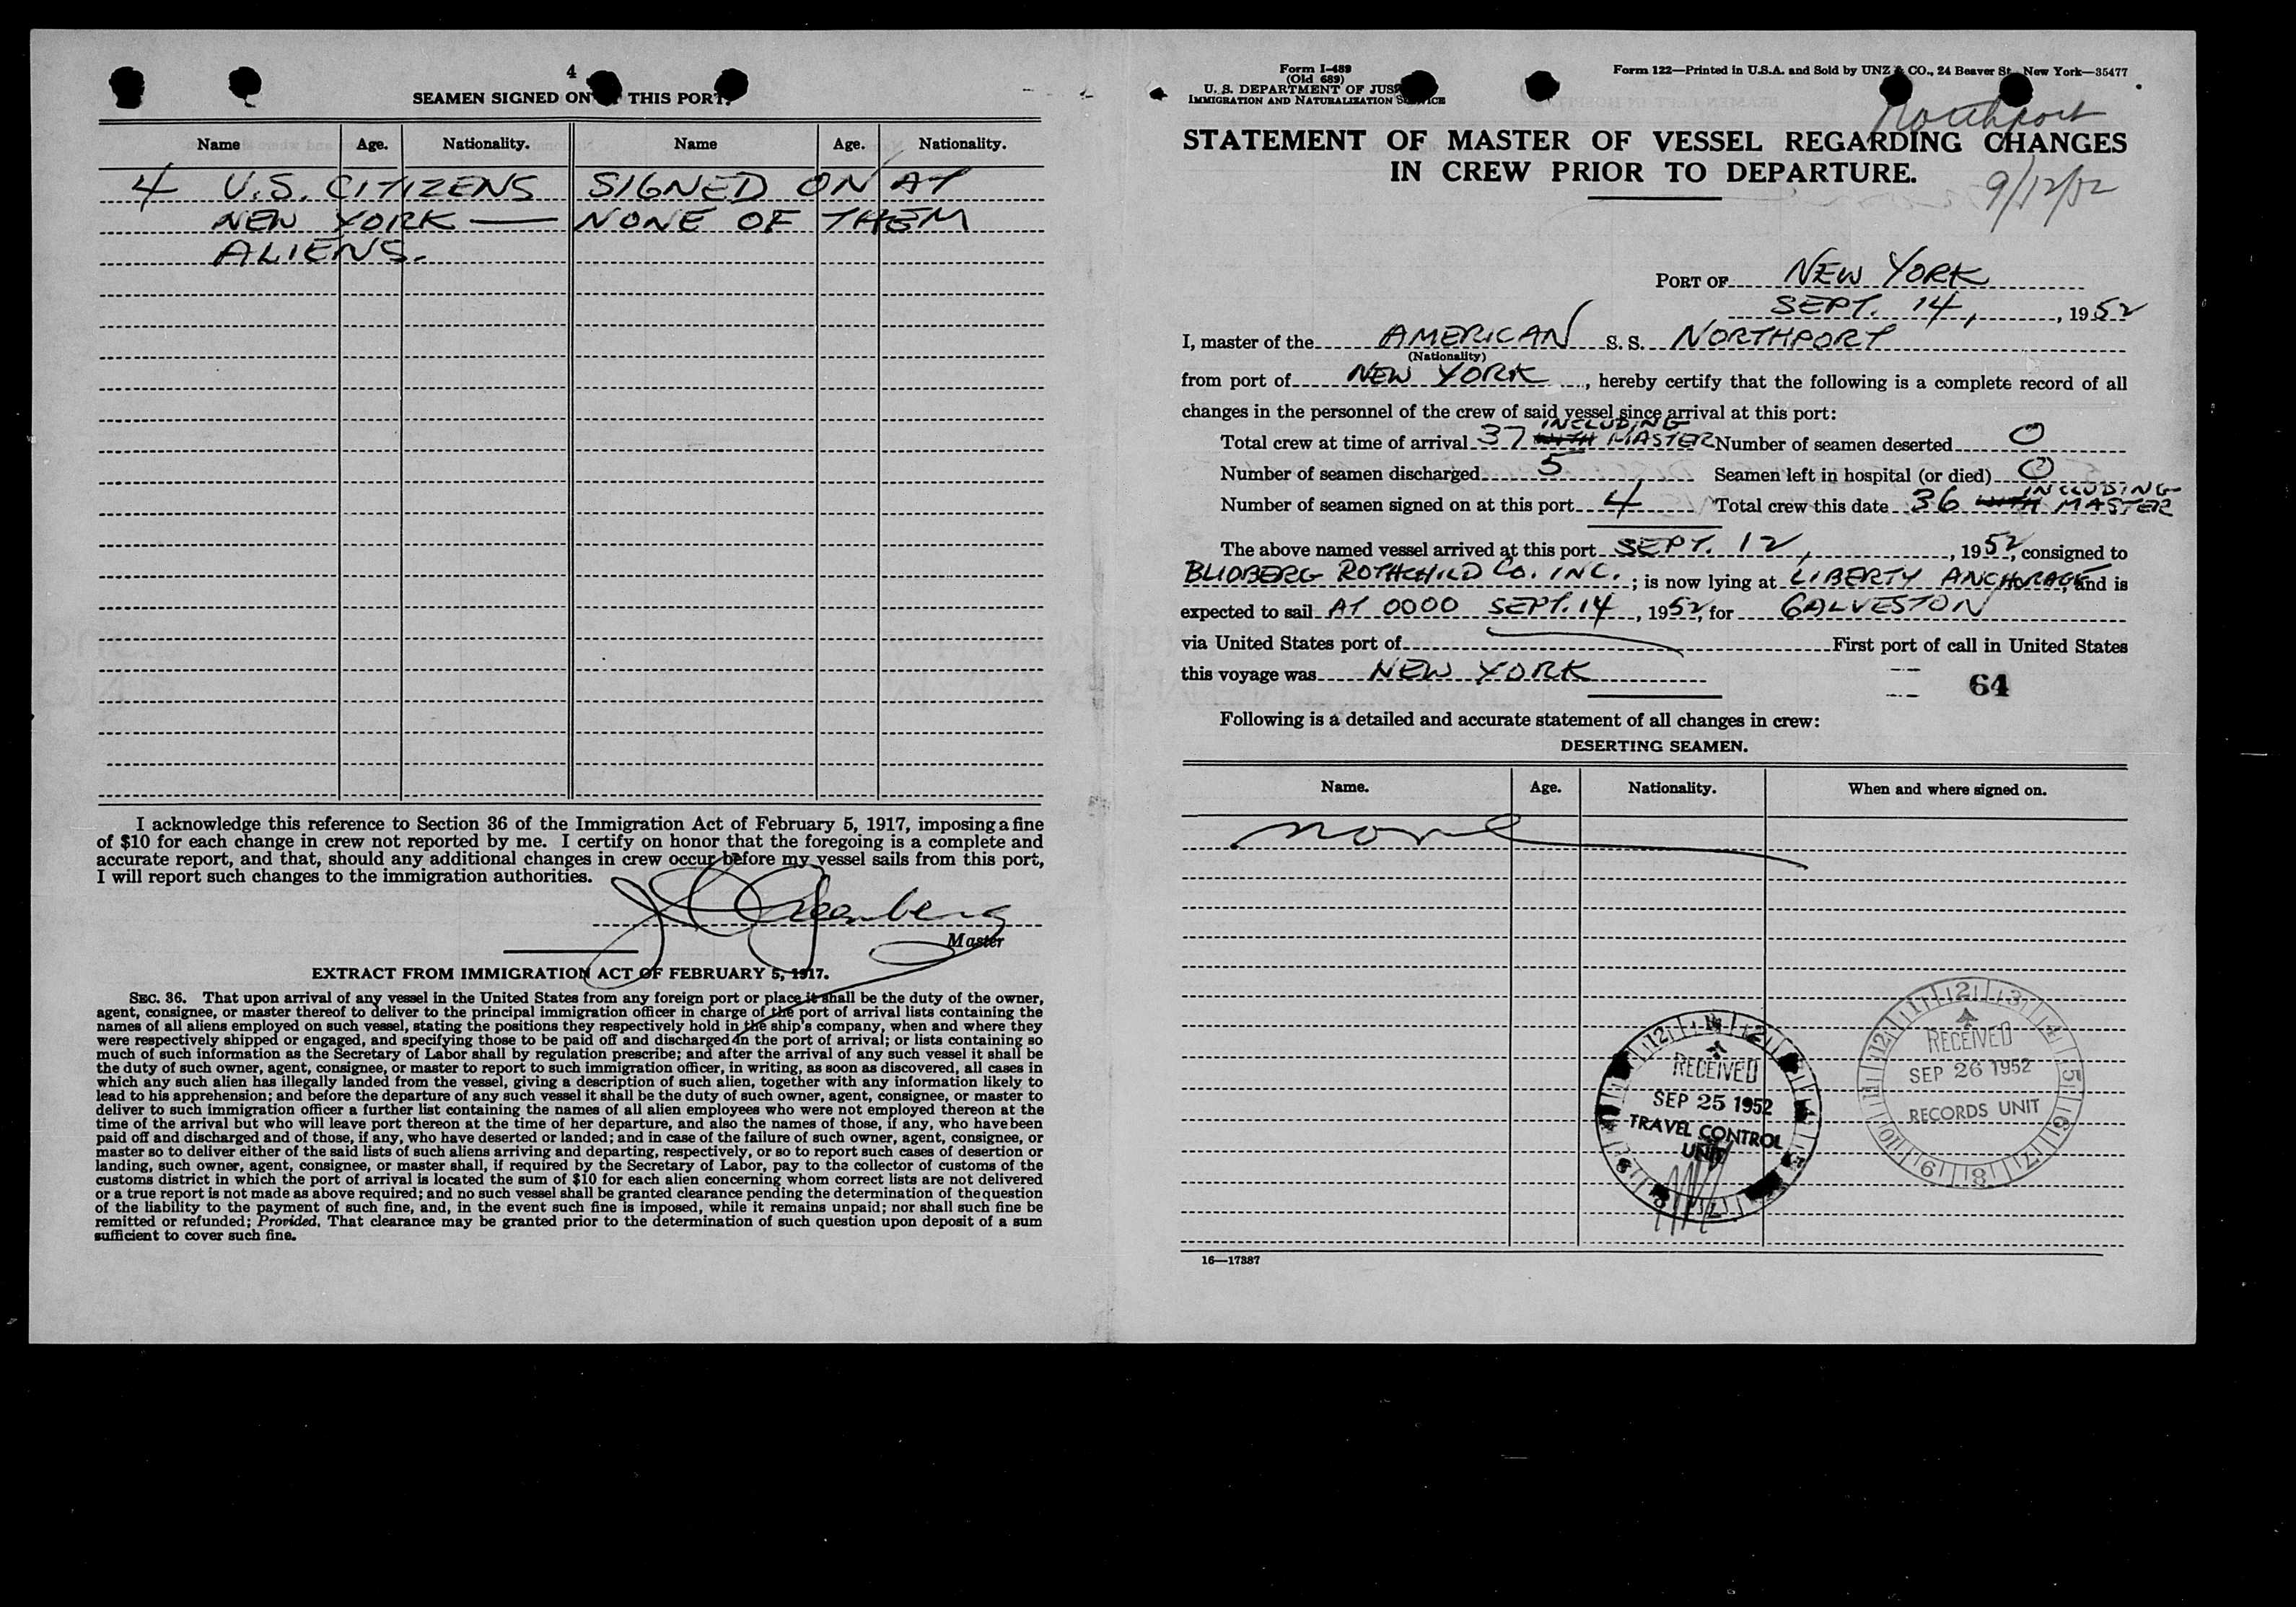 4
SEAMEN SIGNED ON THIS PORT.
Name Age. Nationality. Name Age. Nationality.
4 U.S. CITIZENS SIGNED ON AT
NEW YORK — NONE OF THEM
ALIENS.
I acknowledge this reference to Section 36 of the Immigration Act of February 5, 1917, imposing a fine
of $10 for each change in crew not reported by me. I certify on honor that the foregoing is a complete and
accurate report, and that, should any additional changes in crew occur before my vessel sails from this port,
I will report such changes to the immigration authorities.
Master
EXTRACT FROM IMMIGRATION ACT OF FEBRUARY 5, 1917.
SEC. 36. That upon arrival of any vessel in the United States from any foreign port or place it shall be the duty of the owner,
agent, consignee, or master thereof to deliver to the principal immigration officer in charge of the port of arrival lists containing the
names of all aliens employed on such vessel, stating the positions they respectively hold in the ship's company, when and where they
were respectively shipped or engaged, and specifying those to be paid off and discharged in the port of arrival; or lists containing so
much of such information as the Secretary of Labor shall by regulation prescribe; and after the arrival of any such vessel it shall be
the duty of such owner, agent, consignee, or master to report to such immigration officer, in writing, as soon as discovered, all cases in
which any such alien has illegally landed from the vessel, giving a description of such alien, together with any information likely to
lead to his apprehension; and before the departure of any such vessel it shall be the duty of such owner, agent, consignee, or master to
deliver to such immigration officer a further list containing the names of all alien employees who were not employed thereon at the
time of the arrival but who will leave port thereon at the time of her departure, and also the names of those, if any, who have been
paid off and discharged and of those, if any, who have deserted or landed; and in case of the failure of such owner, agent, consignee, or
master so to deliver either of the said lists of such aliens arriving and departing, respectively, or so to report such cases of desertion or
landing, such owner, agent, consignee, or master shall, if required by the Secretary of Labor, pay to the collector of customs of the
customs district in which the port of arrival is located the sum of $10 for each alien concerning whom correct lists are not delivered
or a true report is not made as above required; and no such vessel shall be granted clearance pending the determination of the question
of the liability to the payment of such fine, and, in the event such fine is imposed, while it remains unpaid; nor shall such fine be
remitted or refunded; Provided, That clearance may be granted prior to the determination of such question upon deposit of a sum
sufficient to cover such fine.
Form I-489
(Old 689)
U. S. DEPARTMENT OF JUS
IMMIGRATION AND NATURALIZATION SERVICE
Form 122—Printed in U.S.A. and Sold by UNZ & CO., 24 Beaver St., New York—35477
Northport
9/12/52
STATEMENT OF MASTER OF VESSEL REGARDING CHANGES
IN CREW PRIOR TO DEPARTURE.
PORT OF NEW YORK
SEPT. 14, , 1952
I, master of the AMERICAN S. S. NORTHPORT
(Nationality)
from port of NEW YORK , hereby certify that the following is a complete record of all
changes in the personnel of the crew of said vessel since arrival at this port:
INCLUDING
Total crew at time of arrival 37 WITH MASTER Number of seamen deserted 0
Number of seamen discharged 5 Seamen left in hospital (or died) 0
INCLUDING
Number of seamen signed on at this port 4 Total crew this date 36 WITH MASTER
The above named vessel arrived at this port SEPT. 12, , 1952, consigned to
BLIDBERG ROTHCHILD CO. INC. ; is now lying at LIBERTY ANCHORAGE, and is
expected to sail AT 0000 SEPT. 14 , 1952, for GALVESTON
via United States port of First port of call in United States
this voyage was NEW YORK
64
Following is a detailed and accurate statement of all changes in crew:
DESERTING SEAMEN.
Name. Age. Nationality. When and where signed on.
none
RECEIVED
SEP 25 1952
TRAVEL CONTROL
UNIT
RECEIVED
SEP 26 1952
RECORDS UNIT
16—17387